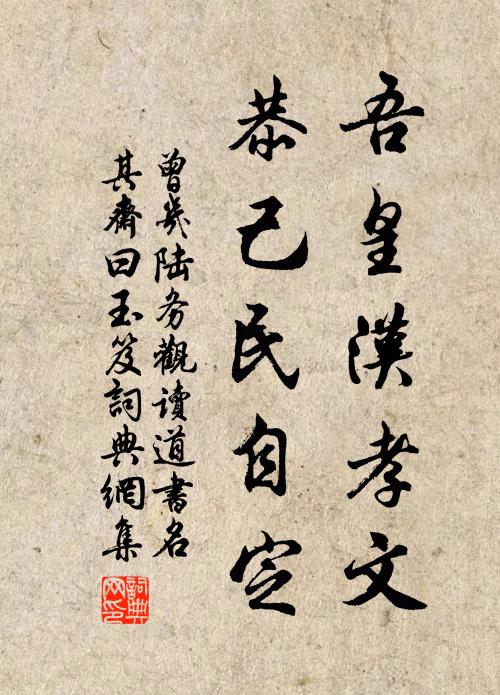 吾皇漢孝文
恭己民自定
曾幾陸务觀读道書名
其齋曰玉笈詞典網集
詞典网印